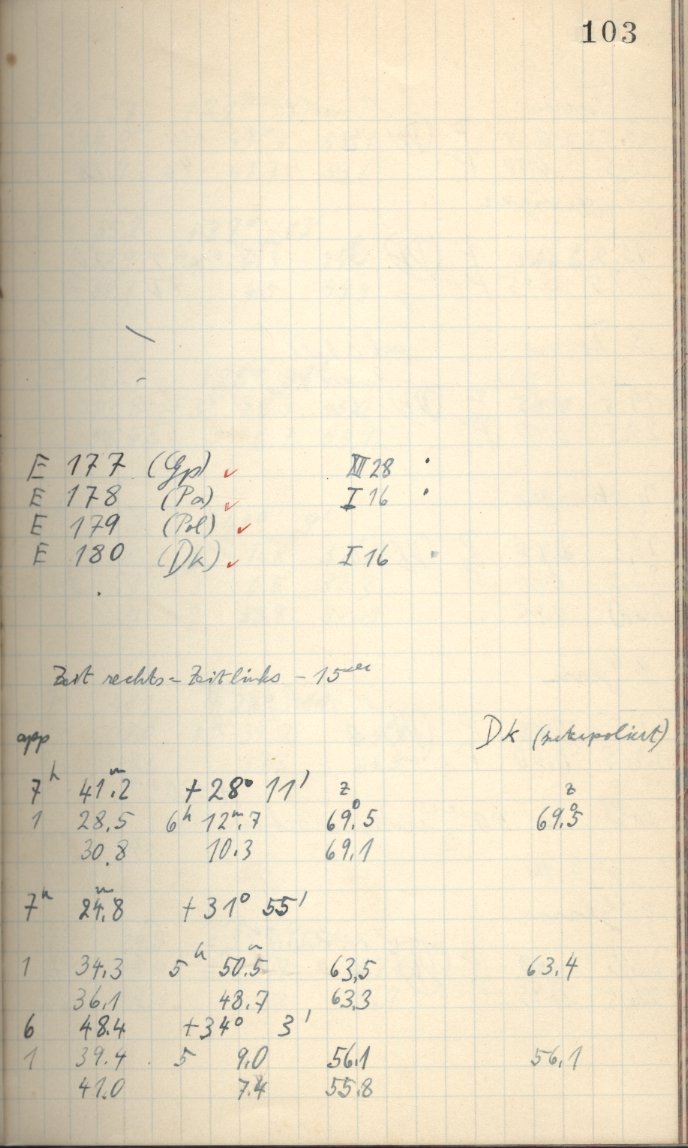 103
E 177 (Gp) ✓ XII 28 .
E 178 (Pa) ✓ I 16 .
E 179 (Pol) ✓
E 180 (Dk) ✓ I 16 .
Zeit rechts = Zeit links - 15 sec
app Dk (interpoliert)
7h 41m.2 +28° 11' z z
1 28.5 6h 12m.7 69°.5 69°.5
30.8 10.3 69.1
7h 24m.8 +31° 55'
1 34.3 5h 50m.5 63,5 63.4
36.1 48.7 63.3
6 48.4 +34° 3'
1 39.4 5 9.0 56.1 56.1
41.0 7.4 55.8